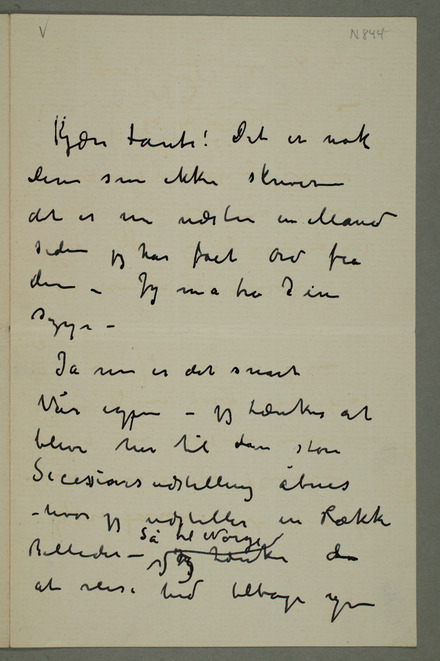 V
N 844
Kjære tante! Det er nok
dere som ikke skriver
det er nu næsten en Maand
siden jeg har fået ord fra
dem – Jeg må tro I er
syge –
Ja nu er det snart
Vår igjen – jeg tænker at
blive her til den store
Secessionsudstilling åbnes
– hvor jeg udstiller en Række
Så til Norge
Billeder – jeg tænker da
at reise hid tilbage igjen